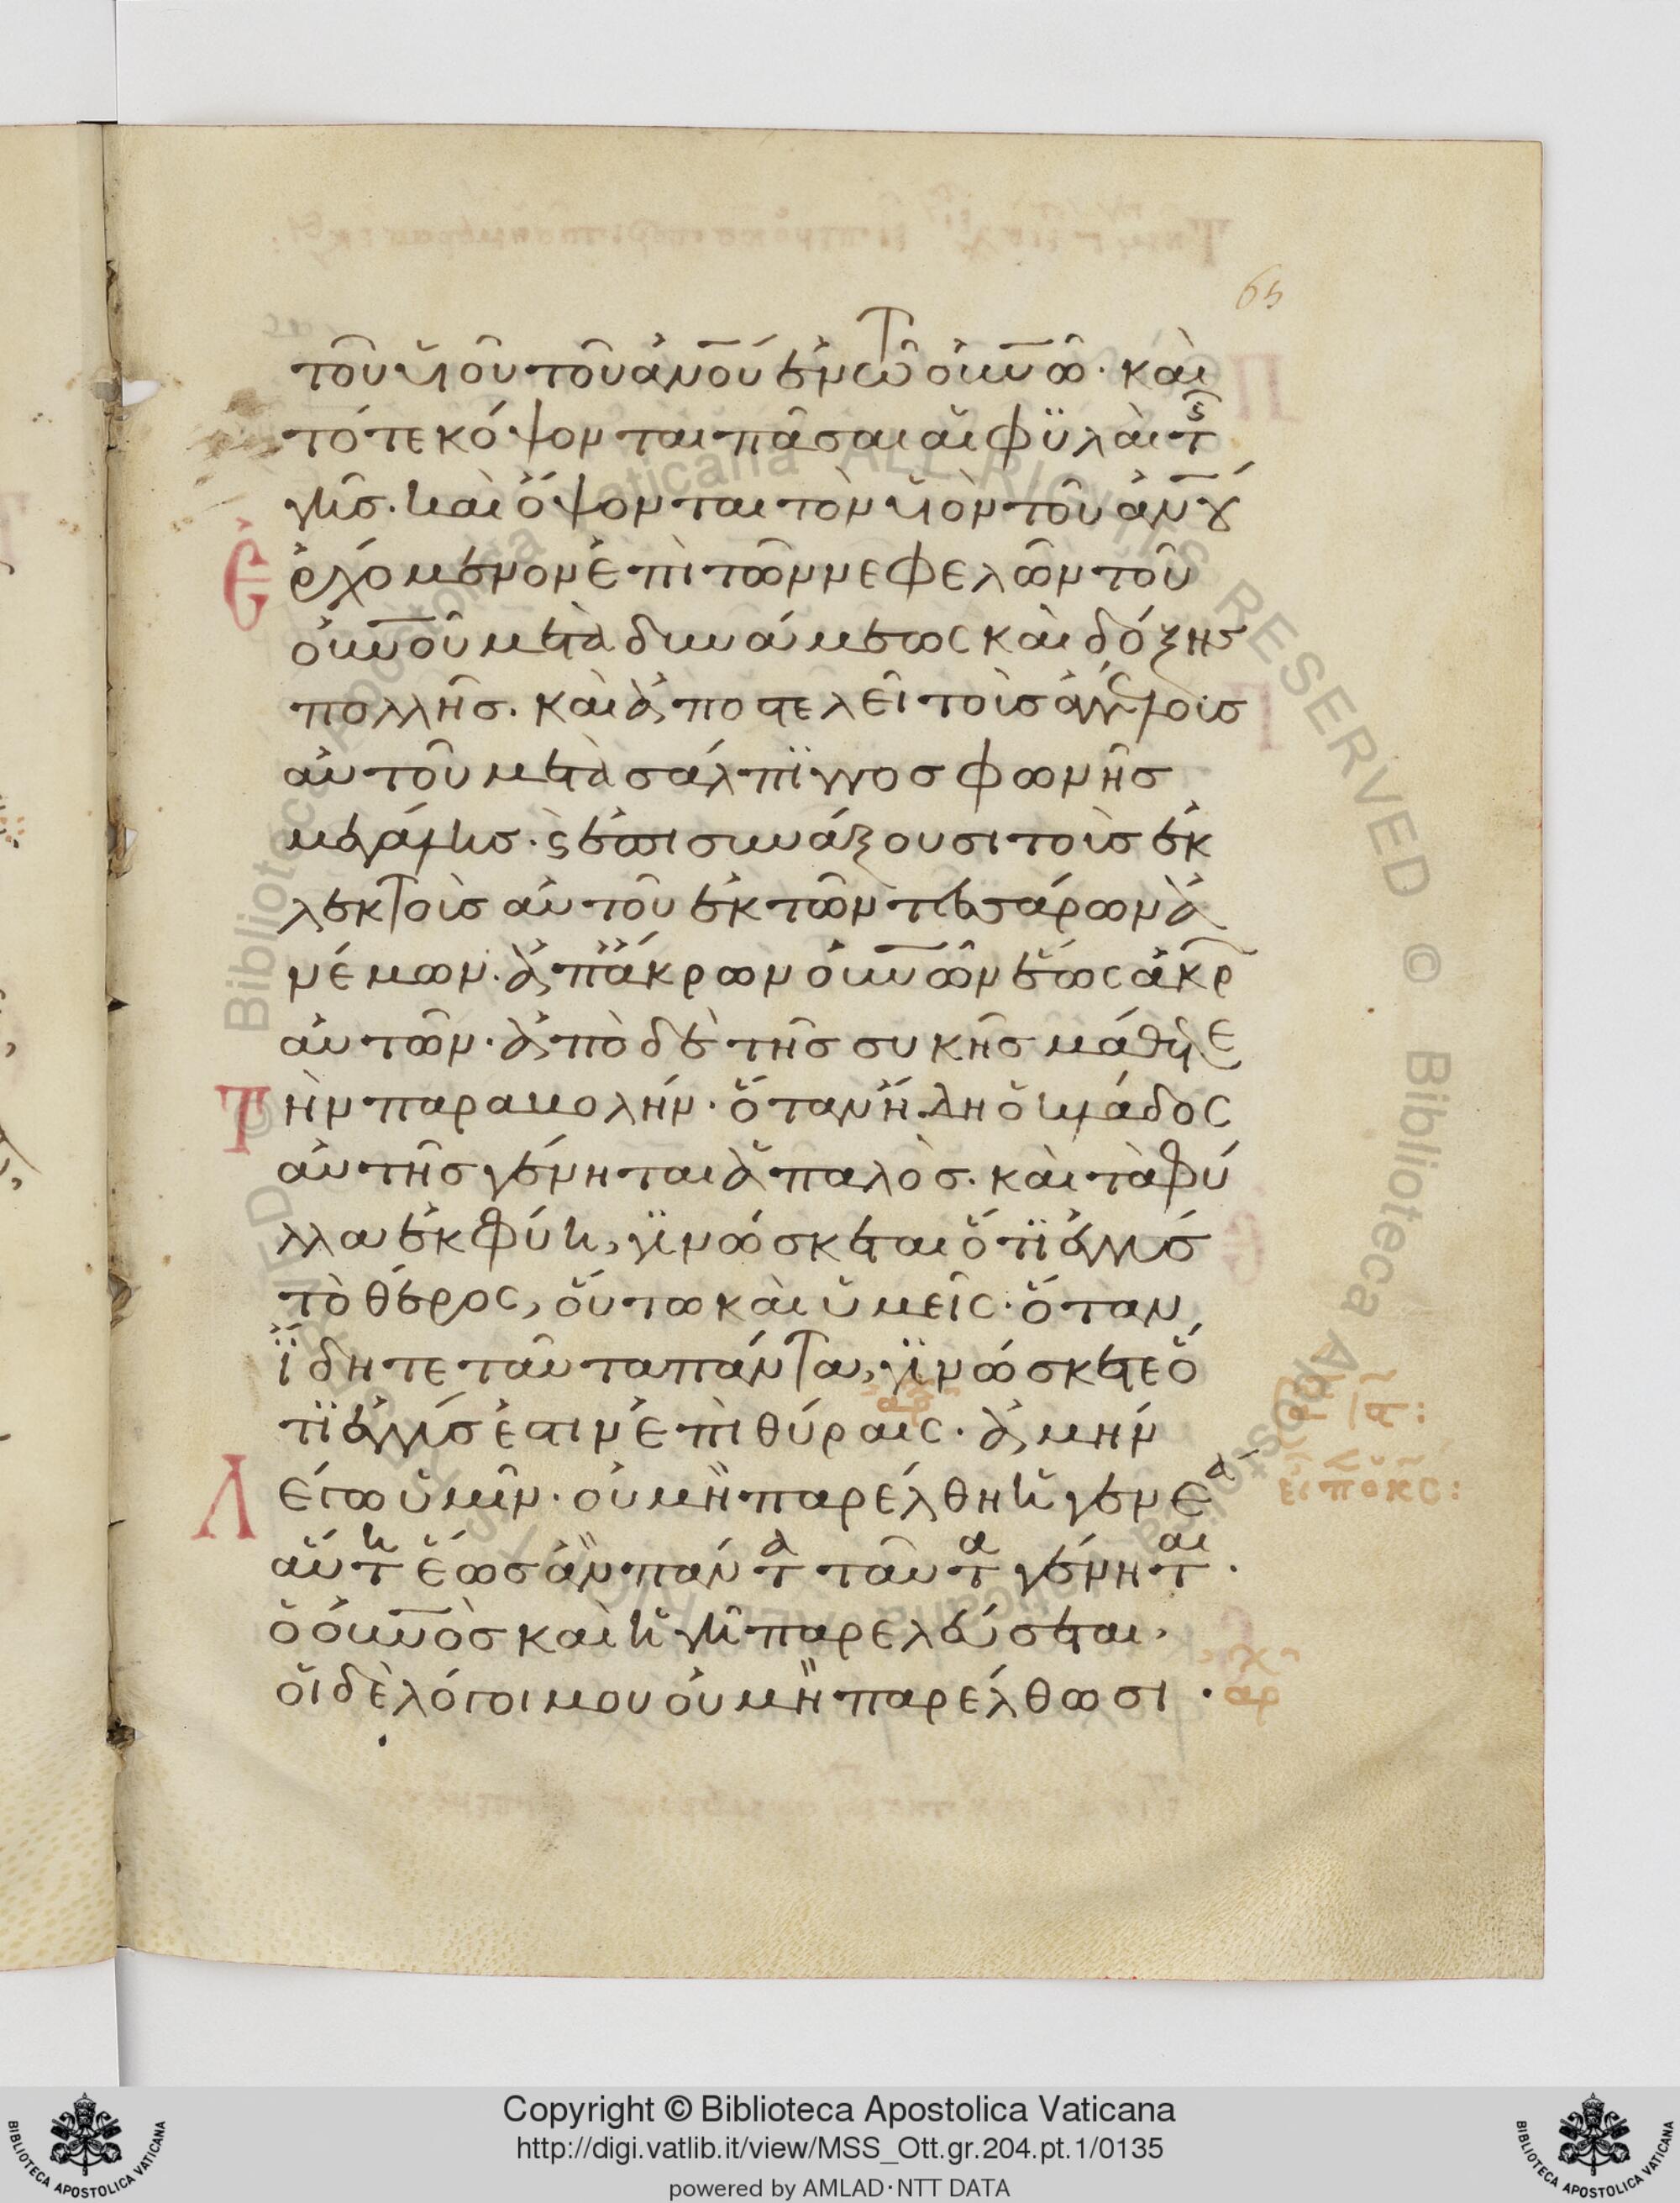 65
τοῦ υἱοῦ τοῦ ἀνού ἐν τῶ οὐνῶ· καὶ
τότε κόψονται πᾶσαι αἱ φϋλαὶ τῆς
γῆς· καὶ ὄψονται τὸν υἱὸν τοῦ ἀνου
ἐρχόμενον ἐπὶ τῶν νεφελῶν τοῦ
οὐνοῦ μετὰ δυνάμεως καὶ δόξης
πολλῆς· καὶ ἀποστελεῖ τοὺς ἀγγέλους
αὐτοῦ μετὰ σάλπϊγγος φωνῆς
μεγάλης· ϛ ἐπισυνάξουσι τοὺς ἐκ
λεκτοὺς αὐτοῦ ἐκ τῶν τεσσάρων ἀ
νέμων· ἀπ ἄκρων οὐνῶν ἕως ἄκρ
αὐτῶν· ἀπὸ δὲ τῆς συκῆς μάθετε
Τὴν παραβολήν· ὅταν ἤδη ὁ κλάδος
αὐτῆς γένηται ἁπαλὸς· καὶ τὰ φύ
λλα ἐκφύη, γϊνώσκεται ὅτϊ ἐγγὺς
τὸ θέρος, οὕτω καὶ ὑμεῖς· ὅταν
ἴδητε ταῦτα πάντα, γϊνώσκετε ὅ
τϊ ἐγγύς ἐστιν ἐπὶ θύραις· ἀμὴν
Λέγω ὑμῖν· οὐ μὴ παρέλθη ἡ γενεὰ
αὕτη ἕως ἂν πάντα ταῦτα γένηται·
ὁ οὐνὸς καὶ ἡ γῆ παρελεύσεται·
οἱ δὲ λόγοι μου οὐ μὴ παρέλθωσι·
αρ
εἶπ ὁ κς:
αρ
Copyright © Biblioteca Apostolica Vaticana
http://digi.vatlib.it/view/MSS_Ott.gr.204.pt.1/0135
powered by AMLAD·NTT DATA
BIBLIOTECA APOSTOLICA VATICANA
BIBLIOTECA APOSTOLICA VATICANA